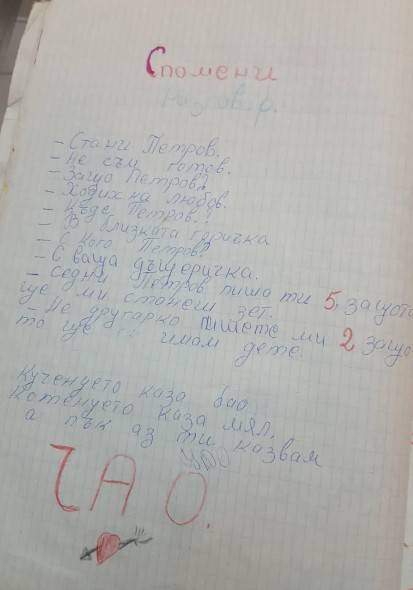 Спомени
Разговор.
- Стани Петров.
- Не съм готов.
- Защо Петров?
- Ходих на любов.
- Къде Петров?
- В близката горичка
- С кого Петров?
- С ваща дъщеричка.
- Седни Петров пиша ти 5, защото
ще ми станеш зет.
- Не другарко пишете ми 2 защо
то ще имам дете.
Кученцето каза бао
Котенцето каза мял,
а пък аз ти казвам
ЧАО.